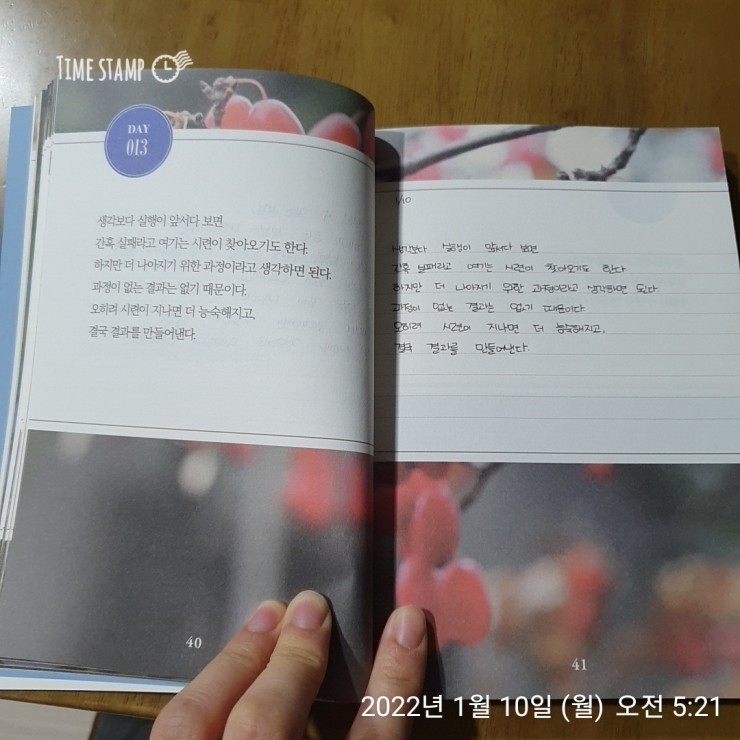 TIME STAMP
DAY
013
생각보다 실행이 앞서다 보면
간혹 실패라고 여기는 시련이 찾아오기도 한다.
하지만 더 나아지기 위한 과정이라고 생각하면 된다.
과정이 없는 결과는 없기 때문이다.
오히려 시련이 지나면 더 능숙해지고,
결국 결과를 만들어낸다.
40
1/10
생각보다 실행이 앞서다 보면
간혹 실패라고 여기는 시련이 찾아오기도 한다
하지만 더 나아지기 위한 과정이라고 생각하면 된다.
과정이 없는 결과는 없기 때문이다
오히려 시련이 지나면 더 능숙해지고,
결국 결과를 만들어낸다.
41
2022년 1월 10일 (월) 오전 5:21